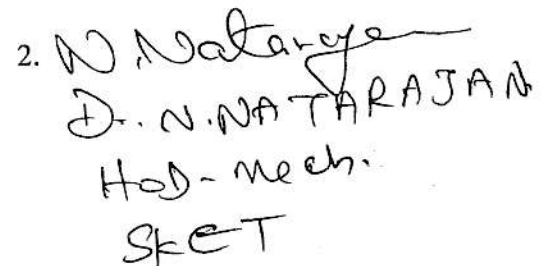 2. N. Natarajan
Dr. N. NATARAJAN
HOD - Mech.
SKCT